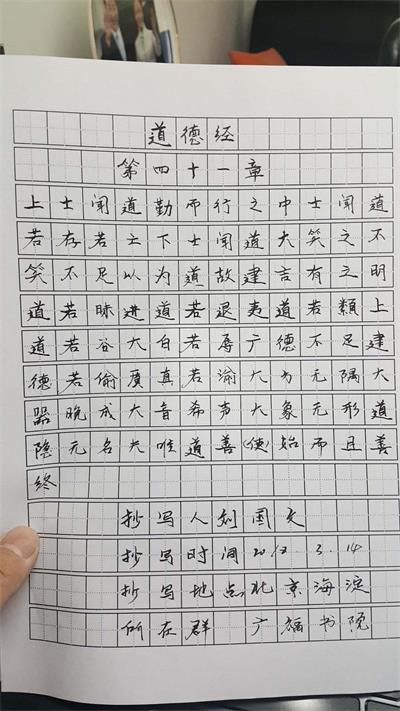 道德经
第四十一章
上士闻道勤而行之中士闻道
若存若亡下士闻道大笑之不
笑不足以为道故建言有之明
道若昧进道若退夷道若纇上
道若谷大白若辱广德不足建
德若偷质真若渝大方无隅大
器晚成大音希声大象无形道
隐无名夫唯道善(使)始而且善
终
抄写人刘国文
抄写时间2018.3.14
抄写地点北京海淀
所在群 广福书院